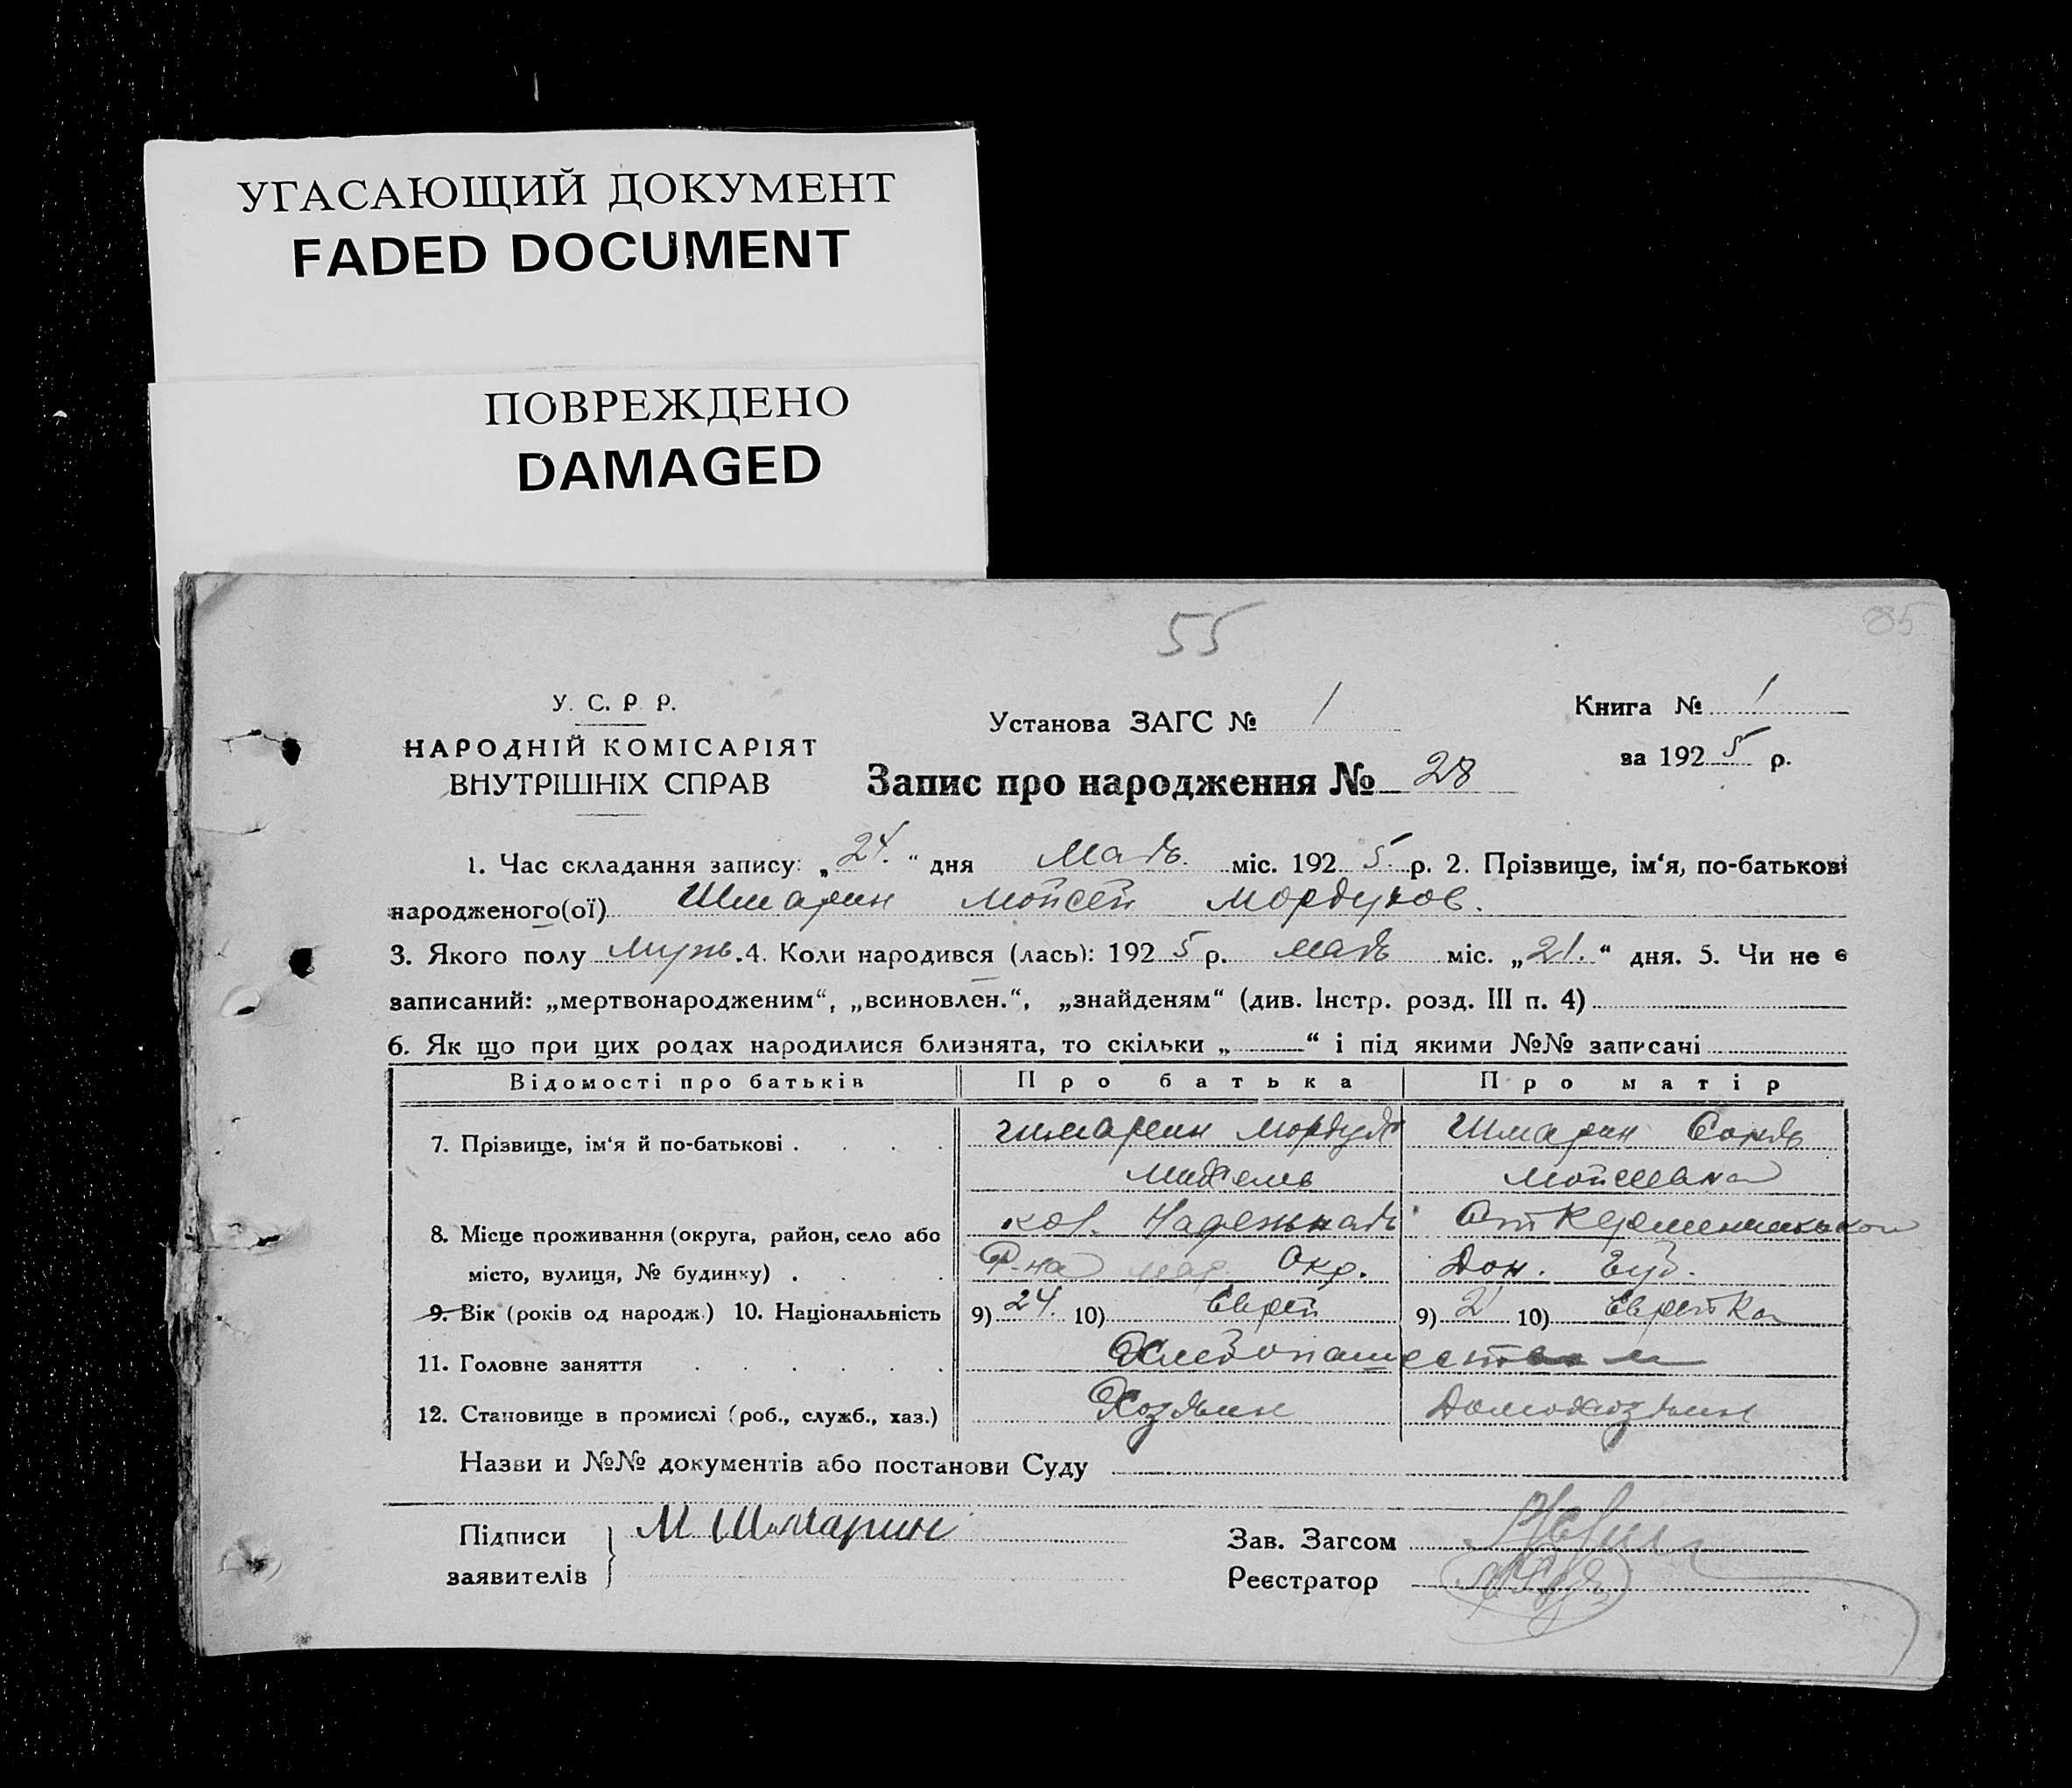 УГАСАЮЩИЙ ДОКУМЕНТ
FADED DOCUMENT
ПОВРЕЖДЕНО
DAMAGED
55
85
У. С. Р Р.
НАРОДНІЙ КОМІСАРІЯТ
ВНУТРІШНІХ СПРАВ
Установа ЗАГС № 1
Книга № 1
за 1925 р.
Запис про народження № 28
1. Час складання запису: „24.“ дня Маія міс. 1925 р. 2. Прізвище, ім‘я, по-батькові
народженого(ої) Шмарин Мойсей Мордухов.
3. Якого полу мужс. 4. Коли народився (лась): 1925 р. маія міс. „21.“ дня. 5. Чи не є
записаний: „мертвонародженим“, „всиновлен.“, „знайденям“ (див. Інстр. розд. III п. 4)
6. Як що при цих родах народилися близнята, то скільки „ “ і під якими №№ записані
Відомості про батьків Про батька Про матір
7. Прізвище, ім‘я й по-батькові . . . . Шмарин Мордух Шмарин Соня
Мойсеевна
8. Місце проживання (округа, район, село або кол. Надежная
місто, вулиця, № будинку) . . . . Р-на мар. Окр.
9. Вік (років од народж.) 10. Національність 9) 24. 10) Еврей 9) 21 10) Еврейка
11. Головне заняття . . . . . . Хлебопашеством
12. Становище в промислі (роб., служб., хаз.) Хозяин Домохозяин
Назви и №№ документів або постанови Суду
Підписи М Шмарин Зав. Загсом
заявителів Реєстратор